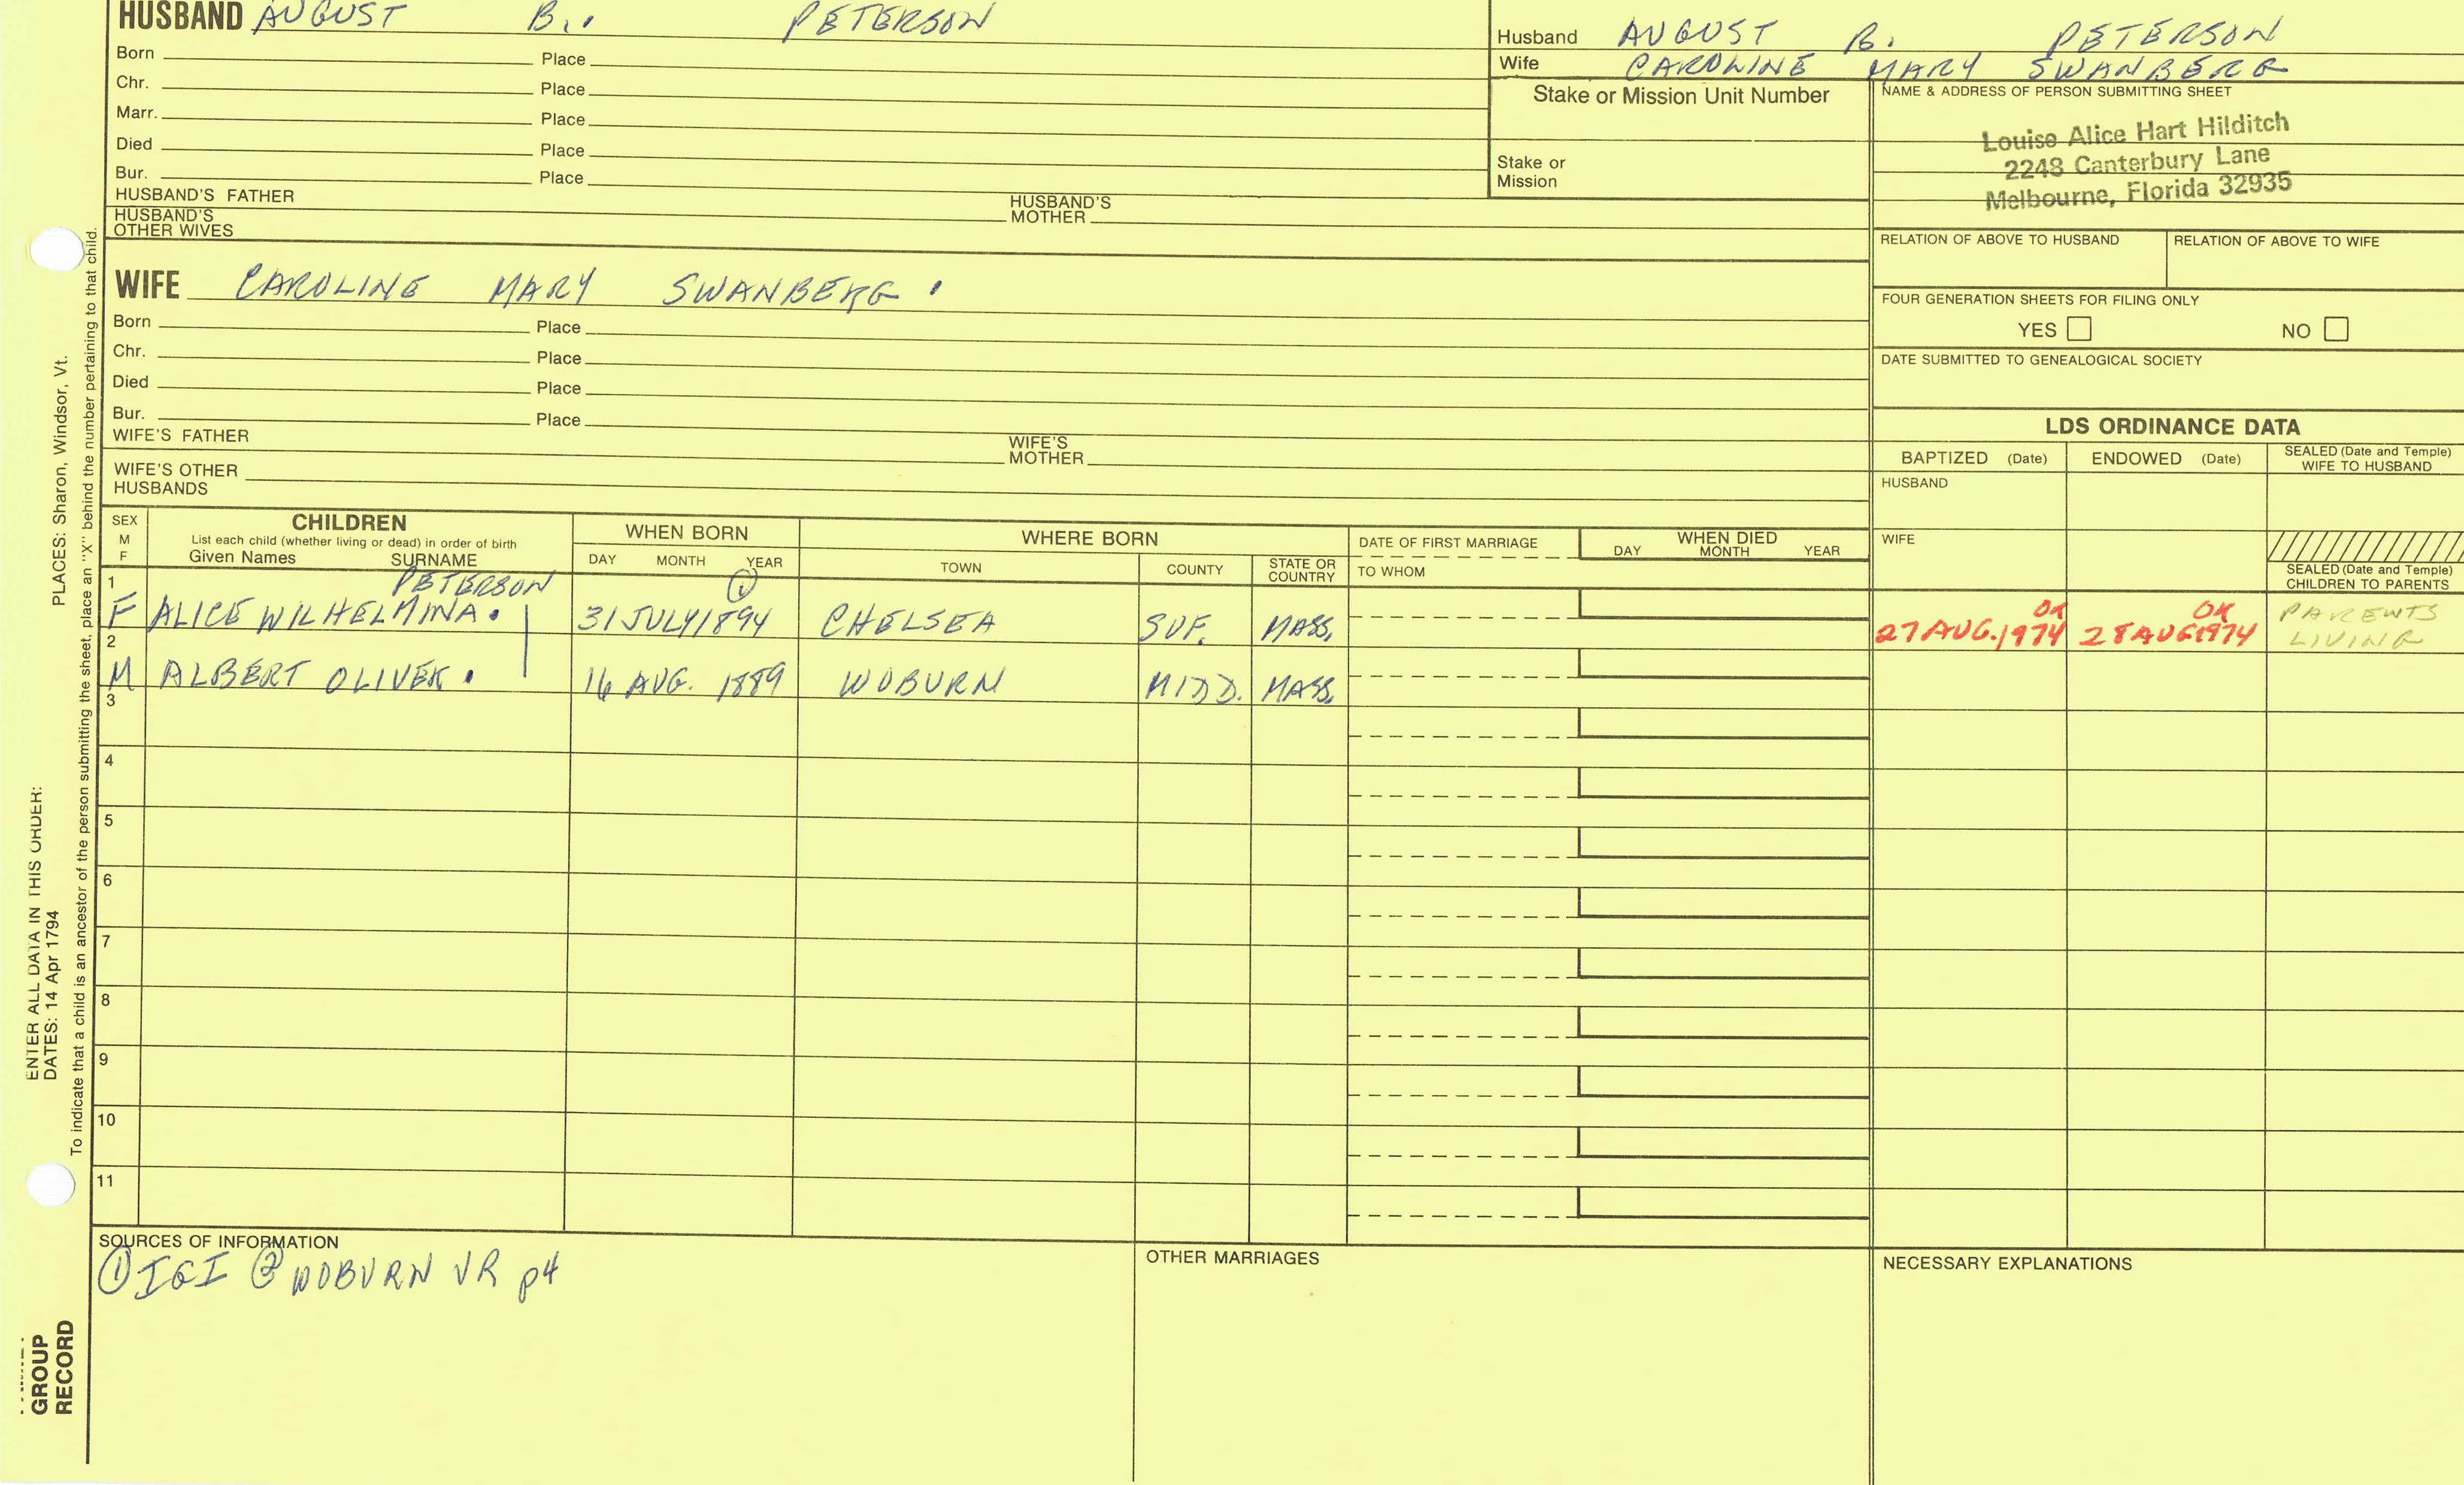 HUSBAND AUGUST B. PETERSON
Born Place
Chr. Place
Marr. Place
Died Place
Bur. Place
HUSBAND'S FATHER HUSBAND'S MOTHER
HUSBAND'S OTHER WIVES
WIFE CAROLINE MARY SWANBERG.
Born Place
Chr. Place
Died Place
Bur. Place
WIFE'S FATHER WIFE'S MOTHER
WIFE'S OTHER HUSBANDS
Husband AUGUST B. PETERSON
Wife CAROLINE MARY SWANBERG
Stake or Mission Unit Number
Stake or
Mission
NAME & ADDRESS OF PERSON SUBMITTING SHEET
Louise Alice Hart Hilditch
2248 Canterbury Lane
Melbourne, Florida 32935
RELATION OF ABOVE TO HUSBAND RELATION OF ABOVE TO WIFE
FOUR GENERATION SHEETS FOR FILING ONLY
YES NO
DATE SUBMITTED TO GENEALOGICAL SOCIETY
LDS ORDINANCE DATA
BAPTIZED (Date) ENDOWED (Date) SEALED (Date and Temple) WIFE TO HUSBAND
HUSBAND
WIFE
SEALED (Date and Temple) CHILDREN TO PARENTS
SEX M F
CHILDREN
List each child (whether living or dead) in order of birth
Given Names SURNAME
WHEN BORN
DAY MONTH YEAR
WHERE BORN
TOWN COUNTY STATE OR COUNTRY
DATE OF FIRST MARRIAGE
TO WHOM
WHEN DIED
DAY MONTH YEAR
PETERSON ①
1 F ALICE WILHELMINA. 31 JULY 1894 CHELSEA SUF. MASS. OK 27 AUG. 1974 OK 28 AUG 1974 PARENTS LIVING
2 M ALBERT OLIVER. 16 AUG. 1889 WOBURN MIDD. MASS.
3
4
5
6
7
8
9
10
11
SOURCES OF INFORMATION
① IGI ② WOBURN VR p4
OTHER MARRIAGES
NECESSARY EXPLANATIONS
ENTER ALL DATA IN THIS ORDER:
DATES: 14 Apr 1794 PLACES: Sharon, Windsor, Vt.
To indicate that a child is an ancestor of the person submitting the sheet, place an "X" behind the number pertaining to that child.
GROUP
RECORD